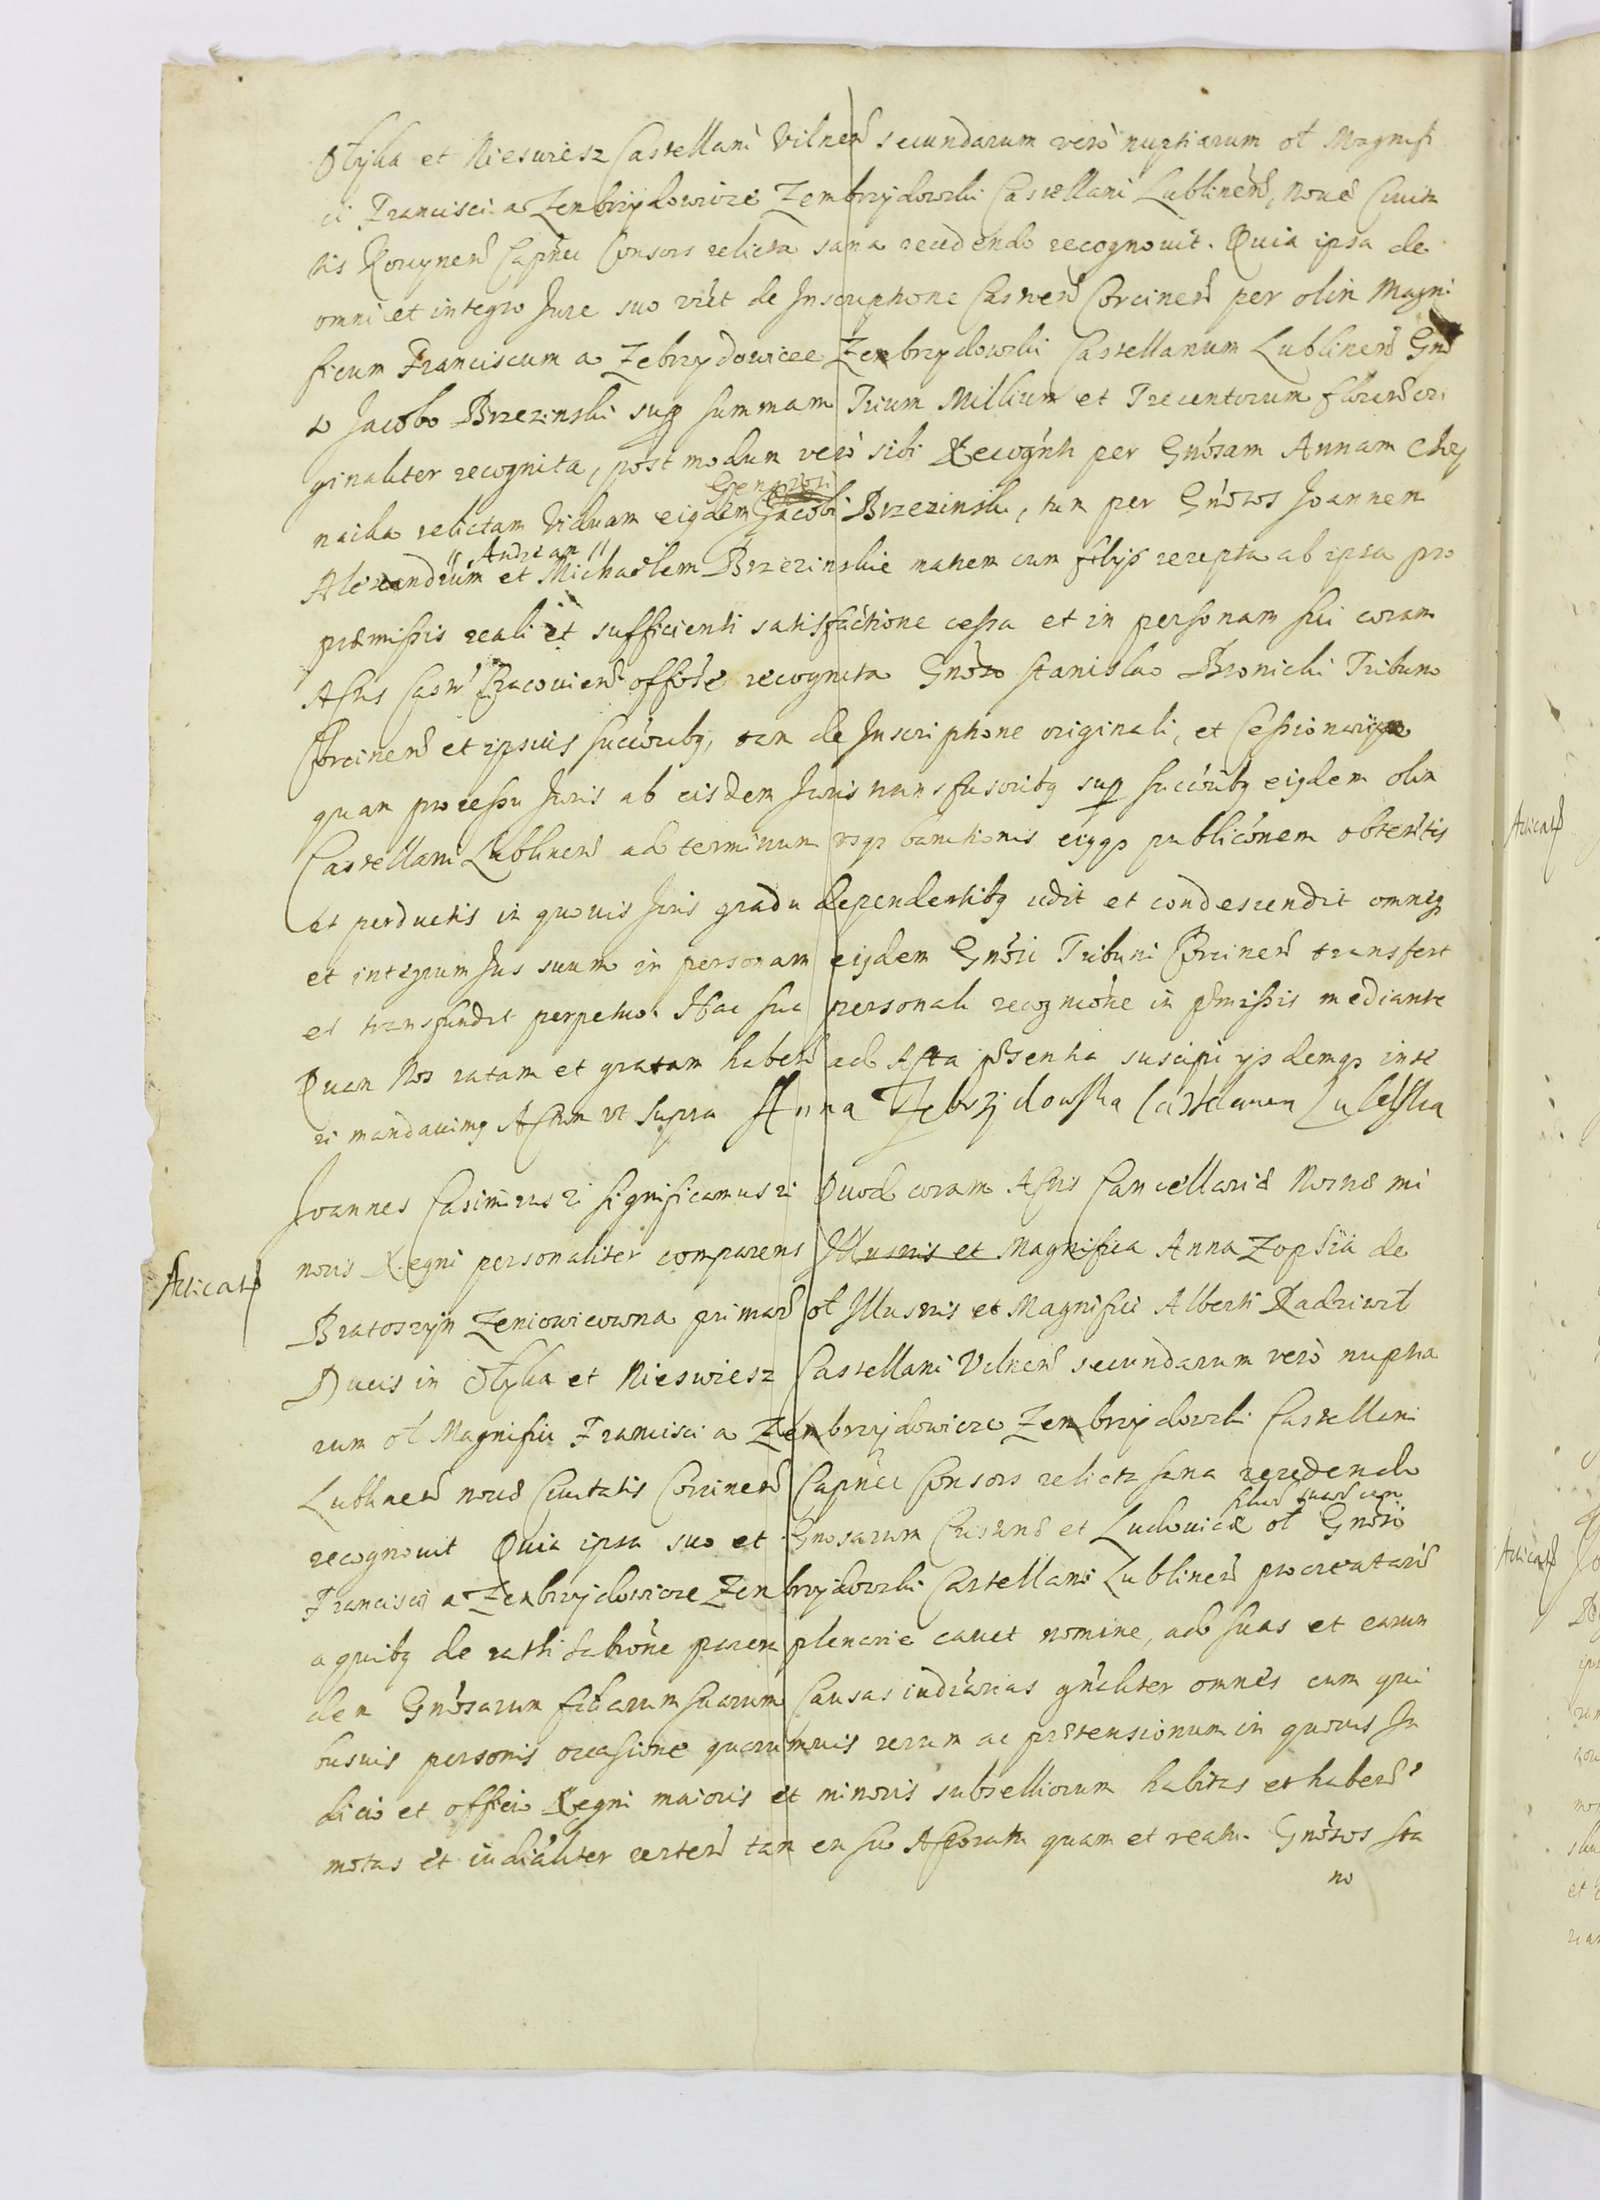 Olyka et Nieswiesz Castellani Vilnen secundarum vero nuptiarum ol Magnifi
ci Francisci a Zembrzydowicze Zembrzydowski Castellani Lublinen, Novae Civita
tis Korcynen Capnei Consors relicta sana recedendo recognovit. Quia ipsa de
omni et integro Jure suo viet de Inscriptione Castren Corcinen per olim Magni
ficum Franciscum a Zebrzydowicze Zembrzydowski Castellanum Lublinen Gno
so Jacobo Brzezinski sup summam Trium Millium et Trecentorum floren ori
ginaliter recognita, post modum vero sibi Recognti per Gnosam Annam Chey
nacka relictam Viduam eiqdem Generosi Jacobi Brzezinski, tum per Gnosos Joannem
"Andream"
Alexandrum et Michaëlem Brzezinskie matrem cum filijs recepta ab ipsa pro
praemissis reali et sufficienti satisfactione cessa et in personam sui coram
Actis Castr Cracovien offose recognita Gnoso Stanislao Bronicki Tribuno
Corcinen et ipsius succoribq, tam de Inscriptione originali, et Cessionarijs
quam processu Juris ab eisdem Juris transfusoribq sup succoribq eiqdem olim
Castellani Lublinen ad terminum usqp banitionis eiqqp publiconem obtentis
et perductis in quovis Juris gradu dependentibq cedit et condescendit omneq
et integrum Jus suum in personam eiqdem Gnosi Tribuni Corcinen transfert
et transfundit perpetuo. Hac sua personali recognicone in pmissis mediante
Quam Nos ratam et gratam haben ad Acta psentia suscipi ijsdemqp inse
ri mandavimq Actum ut supra Anna Zebrzydowska Castelanen Lubelska
Joannes Casimirus ri significamus ri Quod coram Actis Cancellariae Nostrae mi
noris Regni personaliter comparens Illustris et Magnifica Anna Zophia de
Acticat
Bratoszyn Zeniowicowna primar ol Illustris et Magnifici Alberti Radziwil
Ducis in Olyka et Nieswiesz Castellani Vilnen secundarum vero nuptia
rum ol Magnifici Francisci a Zembrzydowicze Zembrzydowski Castellani
Lublinen novae Civitatis Corcinen Capnei Consors relicta sana recedendo
recognovit Quia ipsa suo et Gnosarum et Ludovicae ol Gnosi
Francisci a Zembrzydowicze Zembrzydowski Castellani Lublinen procreatar
a quibq de rathi habitione parem plenarie cavet nomine, ad suas et earun
dem Gnosarum filiarum suarum Causas iudiciarias gnaliter omnes cum qui
busvis personis occasione quarumvis rerum ac praetensionum in quovis Ju
dicio et officio Regni maioris et minoris subselliorum habitas et haben
motas et iudicialiter verten tam en su Actoratu quam et reatu. Gnosos Sta
no